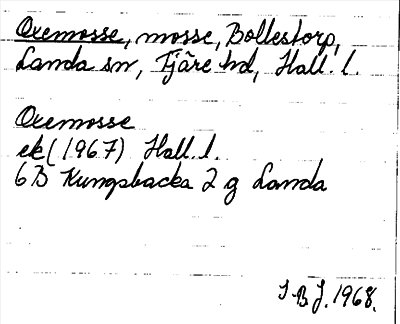 Oxemosse, mosse, Bollestorp,
Landa sn, Fjäre hd, Hall. l.
Oxemosse
ek (1967) Hall. l.
6B Kungsbacka 2 g Landa
S.B.J. 1968.